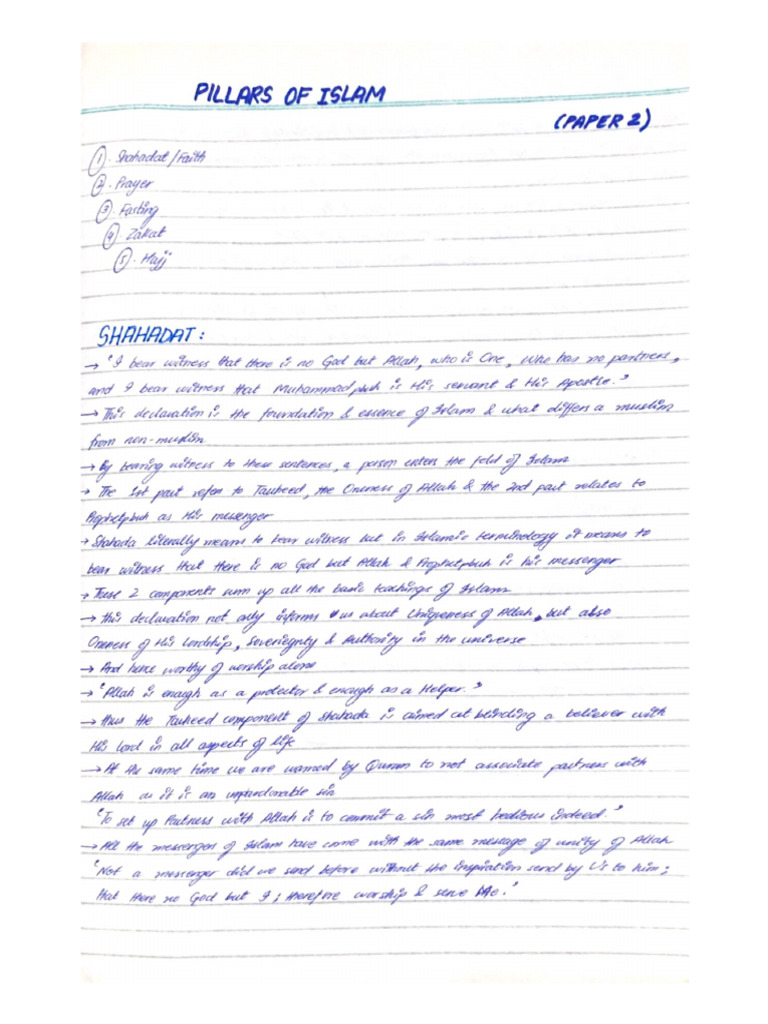 PILLARS OF ISLAM
(PAPER 2)
1. Shahadat/Faith
2. Prayer
3. Fasting
4. Zakat
5. Hajj
SHAHADAT:
→ "I bear witness that there is no God but Allah, who is One, Who has no partners,
and I bear witness that Muhammad pbuh is His servant & His Apostle."
→ This declaration is the foundation & essence of Islam & what differs a muslim
from non-muslim
→ By bearing witness to these sentences, a person enters the fold of Islam
→ The 1st part refers to Tauheed, the Oneness of Allah & the 2nd part relates to
Prophet pbuh as His messenger
→ Shahada literally means to bear witness but in Islamic terminology it means to
bear witness that there is no God but Allah & Prophet pbuh is his messenger
→ These 2 components sum up all the basic teachings of Islam
→ This declaration not only informs us about Uniqueness of Allah, but also
Oneness of His lordship, Soveriegnty & Authority in the universe
→ And hence worthy of worship alone
→ "Allah is enough as a protector & enough as a Helper."
→ thus the Tauheed component of shahada is aimed at blinding a believer with
His lord in all aspects of life
→ At the same time we are warned by Quran to not associate partners with
Allah as it is an unpardonable sin
"To set up Partners with Allah is to commit a sin most hedious indeed."
→ All the messengers of Islam have come with the same message of unity of Allah
"Not a messenger did we send before without the inspiration send by Us to him;
that there no God but I; therefore worship & serve Me."